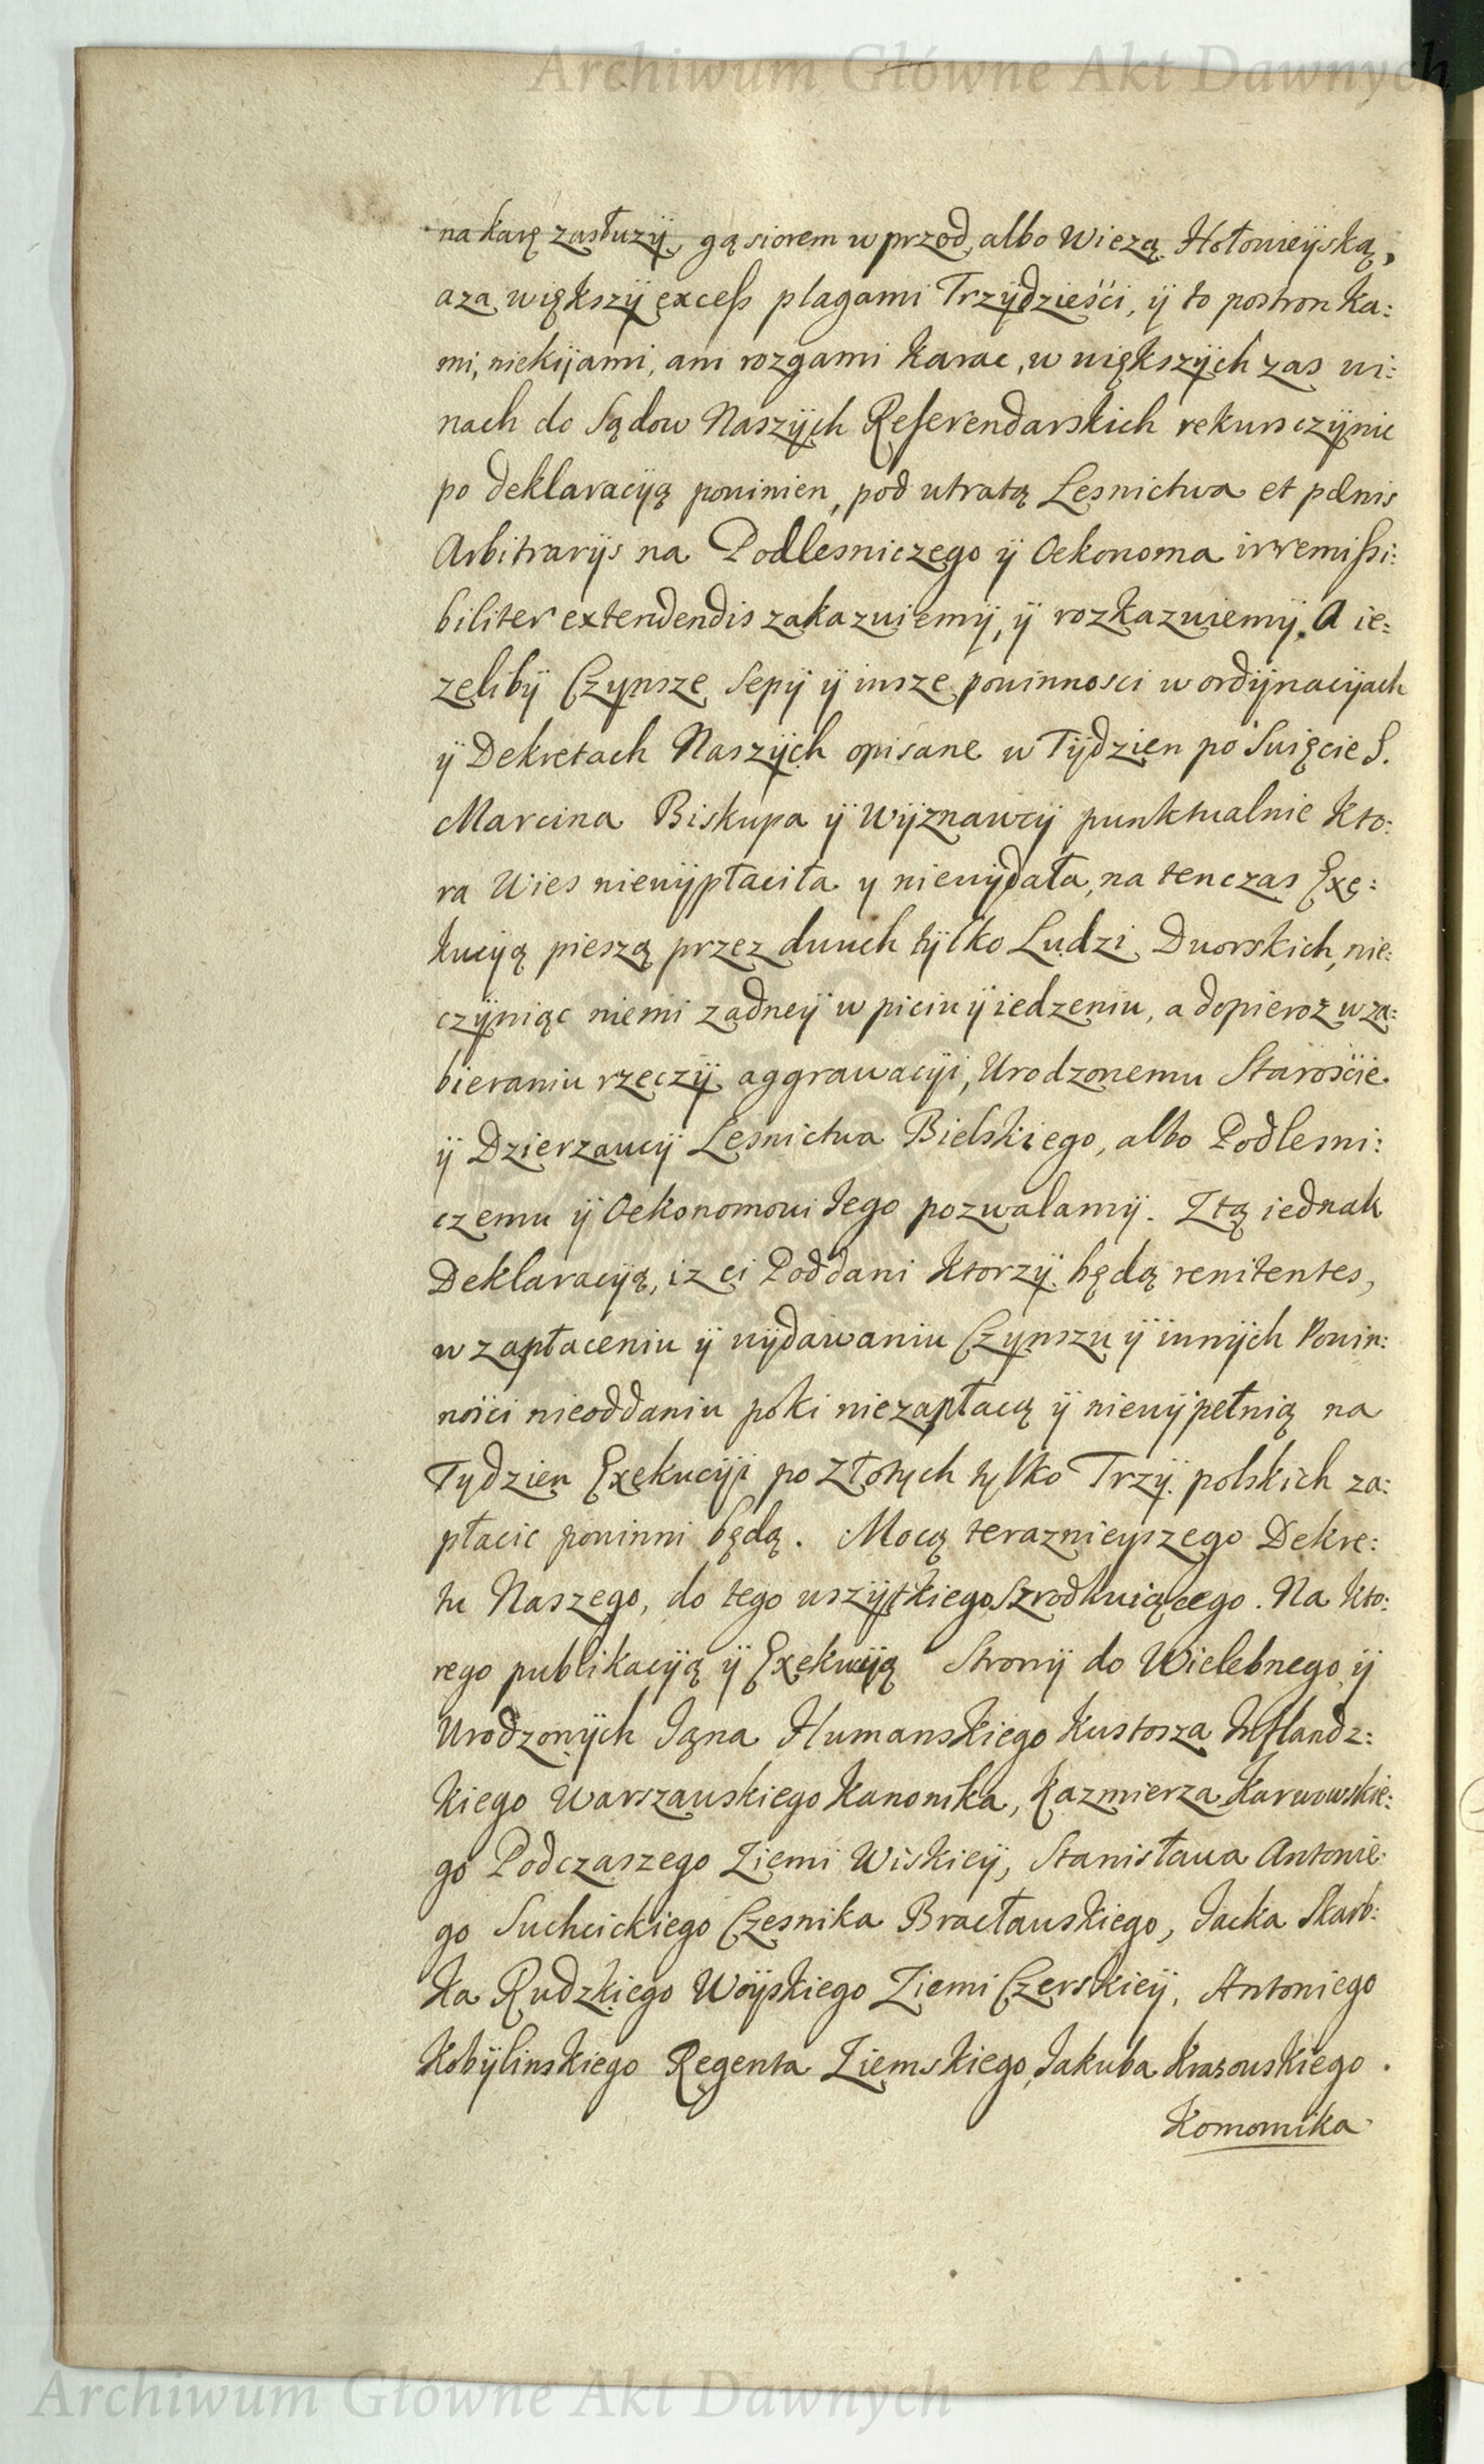 Archiwum Główne Akt Dawnych
na karę zasłuzÿ, gąsiorem w przod, albo Wiezą Hołowieÿską,
aza większÿ excess plagami Trzÿdzieści, ÿ to postronka:
mi, niekijami, ani rozgami karac, w większÿch zas wi:
nach do Sądow Naszÿch Referendarskich rekurs czÿnic
po deklaracÿą powinien, pod utratą Lesnictwa et pœnis
Arbitrarÿs na Podlesniczego ÿ Oekonoma irremissi:
biliter extendendis zakazuiemÿ, ÿ rozkazuiemÿ. A ie:
zelibÿ Czynsze Sepÿ ÿ insze powinnosci w ordÿnacÿach
ÿ Dekretach Naszÿch opisane w Tÿdzien po Swięcie S.
Marcina Biskupa ÿ Wÿznawcÿ punktualnie kto:
ra Wies niewÿpłaciła y niewÿdała, na tenczas Exe:
kucÿą pieszą przez dwuch tÿlko Ludzi Dworskich, nie:
czÿniąc niemi zadneÿ w piciu ÿ iedzeniu, a dopieroz w za:
bieraniu rzeczÿ aggrawacÿi, Urodzonemu Staroscie
ÿ Dzierzawcÿ Lesnictwa Bielskiego, albo Podlesni:
czemu ÿ Oekonomowi Iego pozwalamÿ. Ztą iednak
Deklaracÿą, iz ci Poddani ktorzÿ będą renitentes,
w zapłaceniu ÿ wÿdawaniu Czynszu ÿ innÿch Powin:
nosci nieoddaniu poki niezapłacą ÿ niewÿpełnią na
Tydzien Exekucÿi po Złotych tylko Trzÿ polskich za:
płacic powinni będą. Mocą teraznieyszego Dekre:
tu Naszego, do tego wszÿtkiego Szrodkuiącego. Na kto:
rego publikacÿą ÿ Exekucÿą Stronÿ do Wielebnego ÿ
Urodzonÿch Iana Humanskiego Kustosza Inflandz:
kiego Warszawskiego Kanonika, Kazmierza Karwowskie:
go Podczaszego Ziemi Wiskieÿ, Stanisława Antonie:
go Suchcickiego Czesnika Bracławskiego, Iacka Skarb:
ka Rudzkiego Woÿskiego Ziemi Czerskieÿ, Antoniego
Kobÿlinskiego Regenta Ziemskiego, Iakuba Krasowskiego
Komornika
Archiwum Główne Akt Dawnych